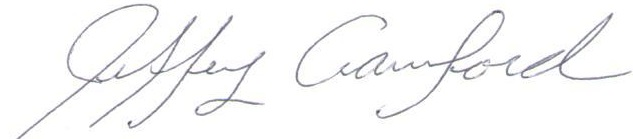 Jeffrey Crawford